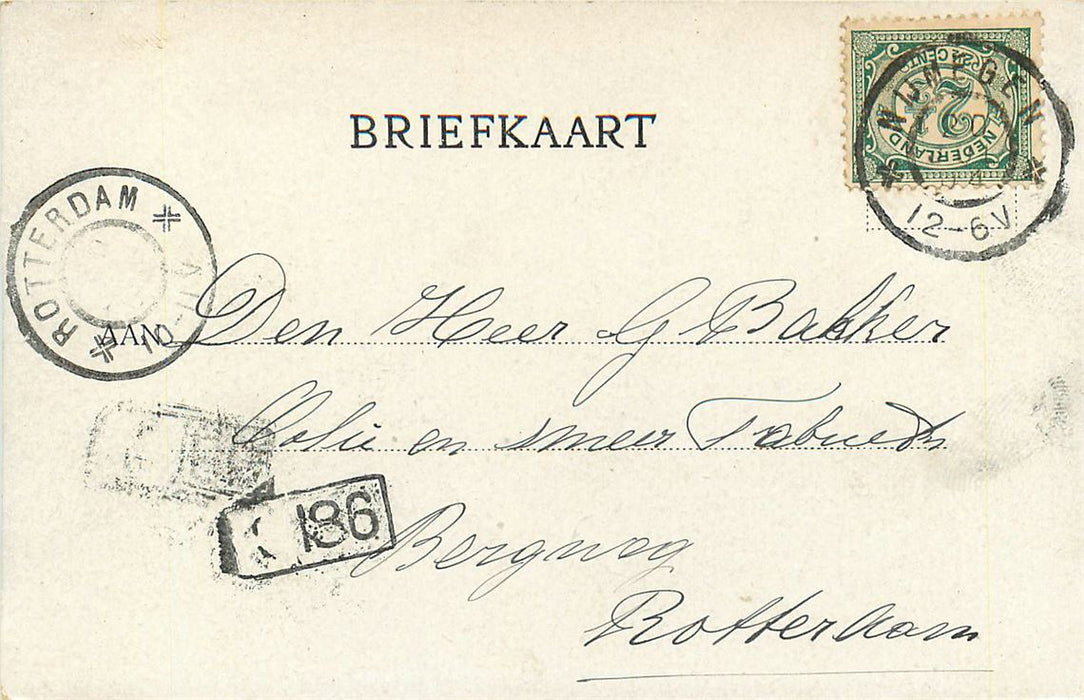 BRIEFKAART
2½ CENT
2½
NEDERLAND
NIJMEGEN
12-6V
ROTTERDAM
AAN Den Heer G Bakker
Olie en smeer Fabriek
186
Bergweg
Rotterdam